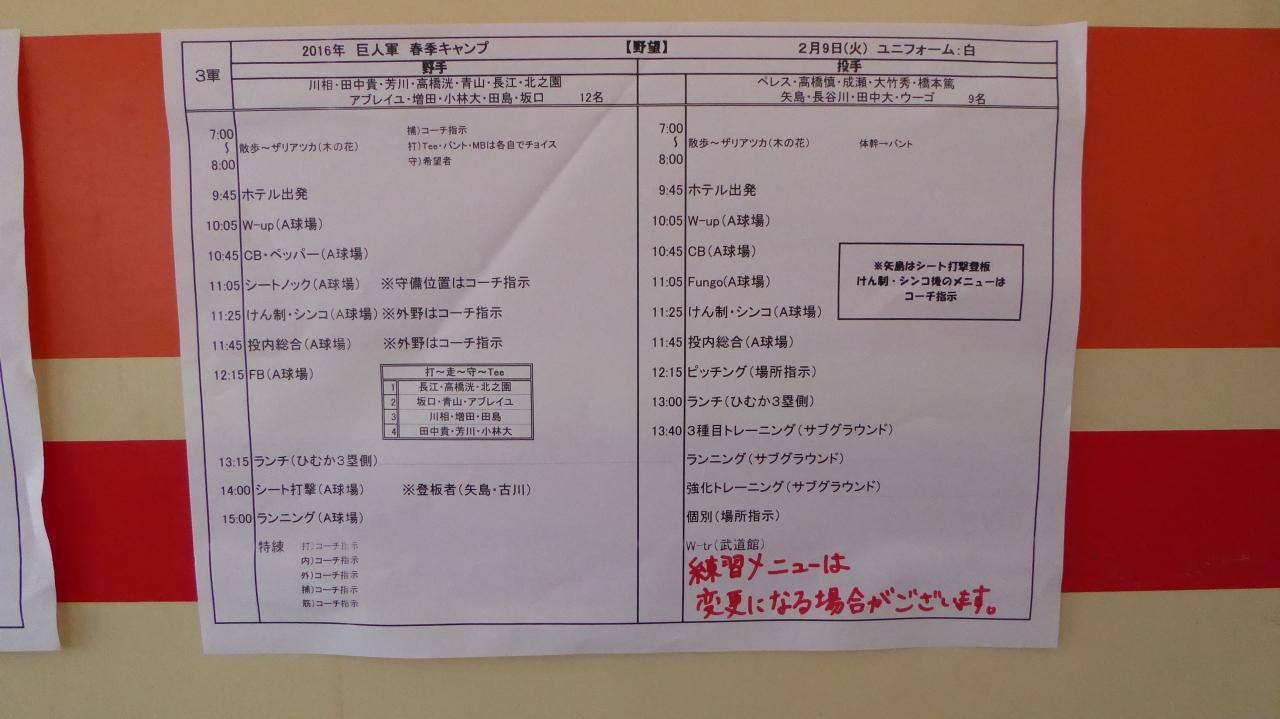 2016年 巨人軍 春季キャンプ 【野望】 2月9日(火) ユニフォーム:白
3軍
野手 投手
川相・田中貴・芳川・高橋洸・青山・長江・北之園
アブレイユ・増田・小林大・田島・坂口 12名
ペレス・高橋慎・成瀬・大竹秀・橋本篤
矢島・長谷川・田中大・ウーゴ 9名
7:00～8:00 散歩～ザリアツカ(木の花)
捕)コーチ指示
打)Tee・バント・MBは各自でチョイス
守)希望者
9:45 ホテル出発
10:05 W-up(A球場)
10:45 CB・ペッパー(A球場)
11:05 シートノック(A球場) ※守備位置はコーチ指示
11:25 けん制・シンコ(A球場) ※外野はコーチ指示
11:45 投内総合(A球場) ※外野はコーチ指示
12:15 FB(A球場)
打～走～守～Tee
1 長江・高橋洸・北之園
2 坂口・青山・アブレイユ
3 川相・増田・田島
4 田中貴・芳川・小林大
13:15 ランチ(ひむか3塁側)
14:00 シート打撃(A球場) ※登板者(矢島・古川)
15:00 ランニング(A球場)
特練 打)コーチ指示
内)コーチ指示
外)コーチ指示
捕)コーチ指示
筋)コーチ指示
7:00～8:00 散歩～ザリアツカ(木の花) 体幹→バント
9:45 ホテル出発
10:05 W-up(A球場)
10:45 CB(A球場)
11:05 Fungo(A球場)
11:25 けん制・シンコ(A球場)
※矢島はシート打撃登板
けん制・シンコ後のメニューは
コーチ指示
11:45 投内総合(A球場)
12:15 ピッチング(場所指示)
13:00 ランチ(ひむか3塁側)
13:40 3種目トレーニング(サブグラウンド)
ランニング(サブグラウンド)
強化トレーニング(サブグラウンド)
個別(場所指示)
W-tr(武道館)
練習メニューは
変更になる場合がございます。